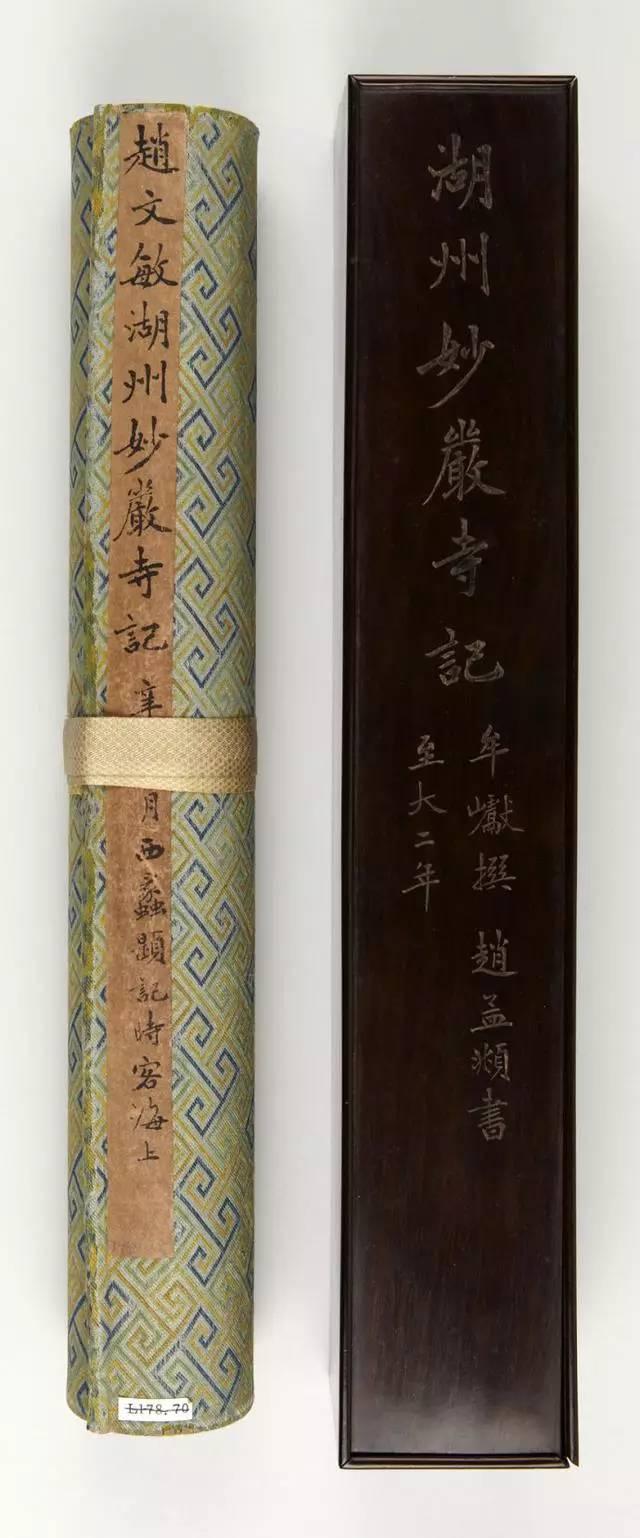 趙文敏湖州妙嚴寺記
辛
月西蠡題記時客海上
L178.70
湖州妙嚴寺記
牟巘撰 趙孟頫書
至大二年